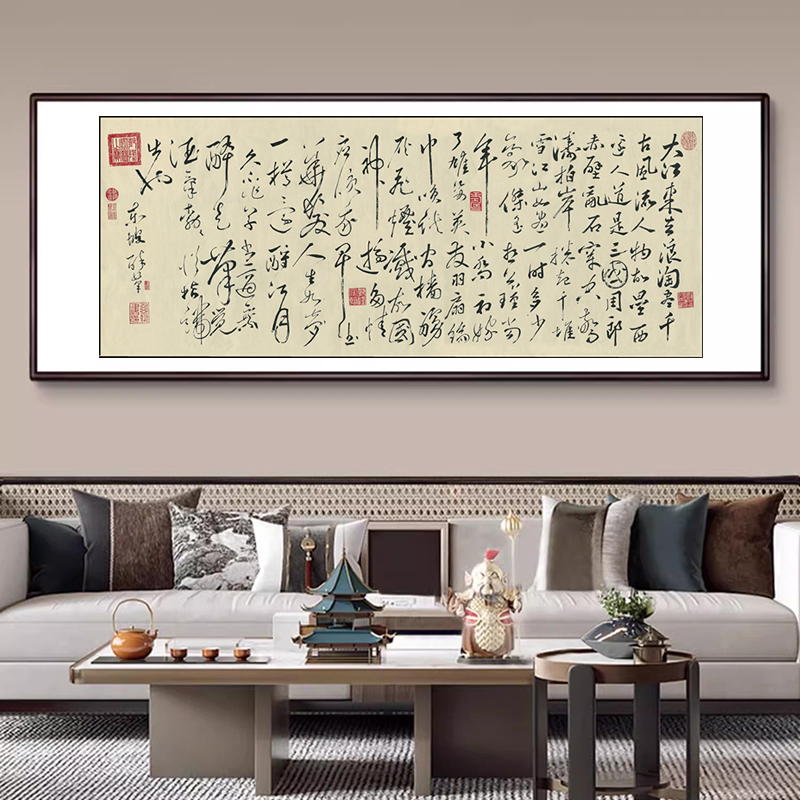 大江東去浪淘盡千
古風流人物故壘西
邊人道是三國周郎
赤壁亂石穿空驚
濤拍岸捲起千堆
雪江山如畫一時多少
豪傑遥想公瑾當
年小喬初嫁
了雄姿英發羽扇綸
巾談笑間檣艣
灰飛煙滅故國
神遊多情
應笑我早生
華髮人生如夢
一樽還酹江月
久不作草書適乘
醉走筆覺
酒氣勃勃從指端
出也
東坡醉筆